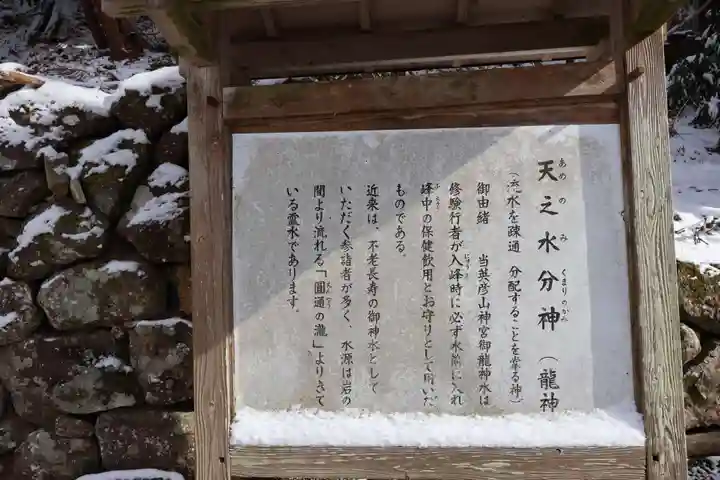 天之水分神（龍神
あめ の み くまり のかみ
（流水を疎通 分配することを掌る神）
御由緒 当英彦山神宮御龍神水は
修験行者が入峰時に必ず水筒に入れ
にゅうぶ
峰中の保健飲用とお守りとして用いた
ものである。
近来は、不老長寿の御神水として
いただく参詣者が多く、水源は岩の
間より流れる「圓通の瀧」よりきて
いる霊水であります。